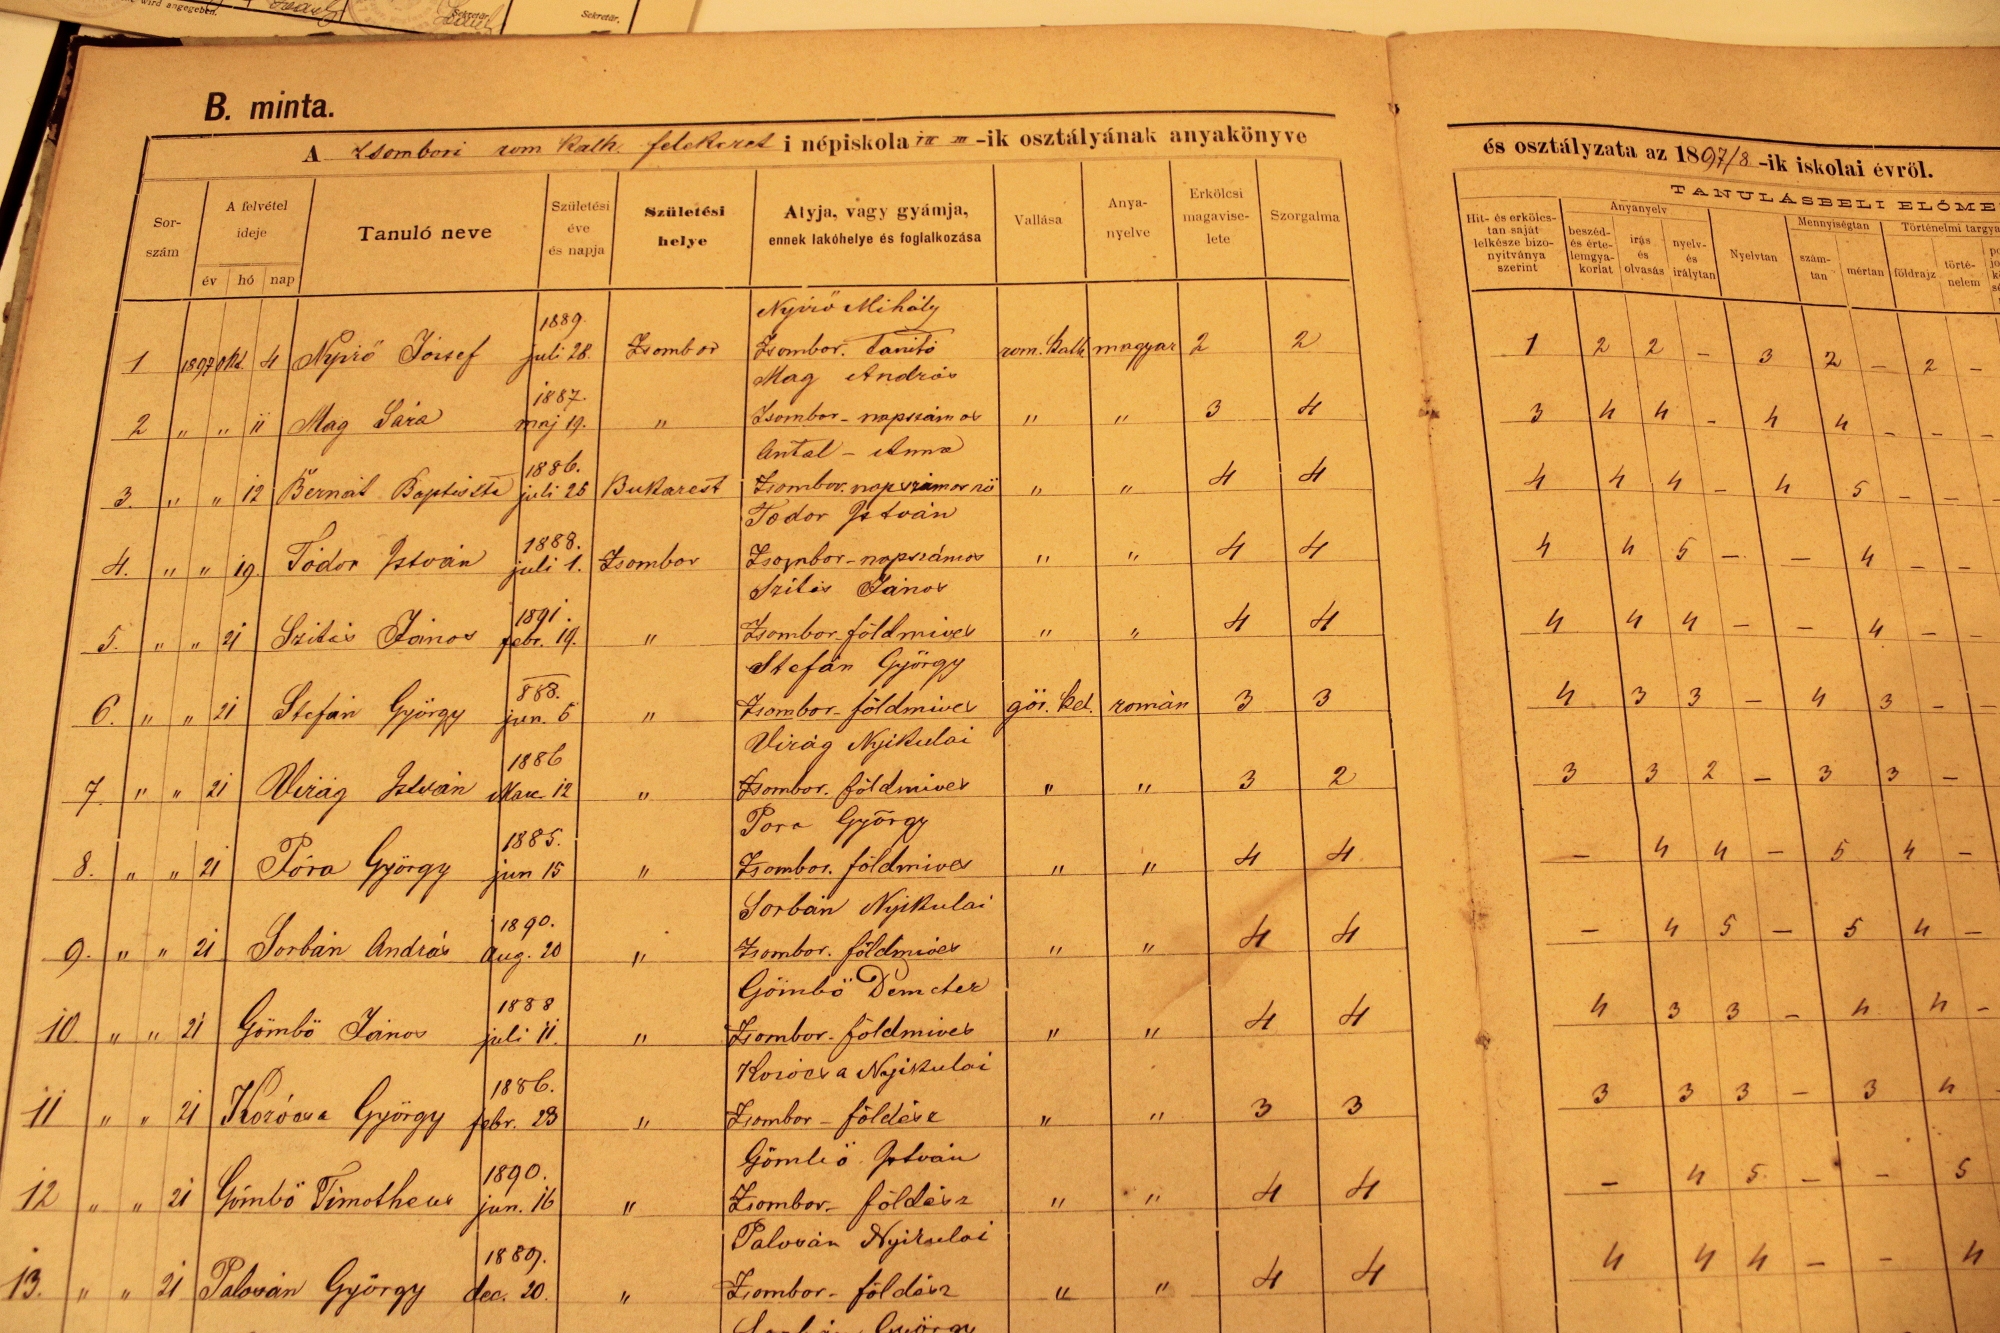 wird angegeben.
Sekretär.
Sekretär.
B. minta.
A Zsombori rom kath. felekezet i népiskola -ik osztályának anyakönyve
Sor-szám
A felvétel ideje
év hó nap
Tanuló neve
Születési éve és napja
Születési helye
Atyja, vagy gyámja, ennek lakóhelye és foglalkozása
Vallása
Anya-nyelve
Erkölcsi magavise-lete
Szorgalma
Nyírő Mihály
1 1897 Okt. 4 Nyirő József 1889. juli 28. Zsombor Zsombor. Tanító rom. kath. magyar 2 2
Mag András
2 " " 11 Mag Sára 1887. maj 19. " Zsombor - napszámos " " 3 4
Antal - Anna
3. " " 12 Bernát Baptiszta 1886. juli 25 Bukarest Zsombor. napszámosnő " " 4 4
Todor István
4. " " 19. Tódor István 1888. juli 1. Zsombor Zsombor - napszámos " " 4 4
Szitás János
5. " " 21 Szitás János 1891. febr. 19. " Zsombor - földmives " " 4 4
Stefán György
6. " " 21 Stefán György 888. jun. 5 " Zsombor - földmives gör. kel. román 3 3
Virág Nyikulai
7. " " 21 Virág István 1886 Marc. 12 " Zsombor. földmives " " 3 2
Pora György
8. " " 21 Póra György 1885. jun 15 " Zsombor. földmives " " 4 4
Sorbán Nyikulai
9. " " 21 Sorbán András 1890. aug. 20 " Zsombor. földmives " " 4 4
Gömbö Demeter
10. " " 21 Gömbö János 1888 juli 11. " Zsombor - földmives " " 4 4
Korócsa Nyikulai
11 " " 21 Korócsa György 1886. febr. 23 " Zsombor - földész " " 3 3
Gömbö István
12 " " 21 Gömbö Timotheus 1890. jun. 16 " Zsombor - földész " " 4 4
Palosán Nyikulai
13. " " 21 Palosán György 1889. dec. 20. " Zsombor - földész " " 4 4
György
és osztályzata az 1897/8-ik iskolai évről.
TANULÁSBELI ELŐME
Hit- és erkölcs-tan saját lelkésze bizo-nyítványa szerint
Anyanyelv
beszéd- és érte-lemgya-korlat
irás és olvasás
nyelv- és irálytan
Nyelvtan
Mennyiségtan
szám-tan
mértan
Történelmi tárgya
földrajz
törté-nelem
1 2 2 - 3 2 - 2 -
3 4 4 - 4 4 - - -
4 4 4 - 4 5 - - -
4 4 5 - - 4 - -
4 4 4 - - 4 - -
4 3 3 - 4 3 - -
3 3 2 - 3 3 -
- 4 4 - 5 4 -
- 4 5 - 5 4 -
4 3 3 - 4 4 -
3 3 3 - 3 4
- 4 5 - - 5
4 4 4 - - 4